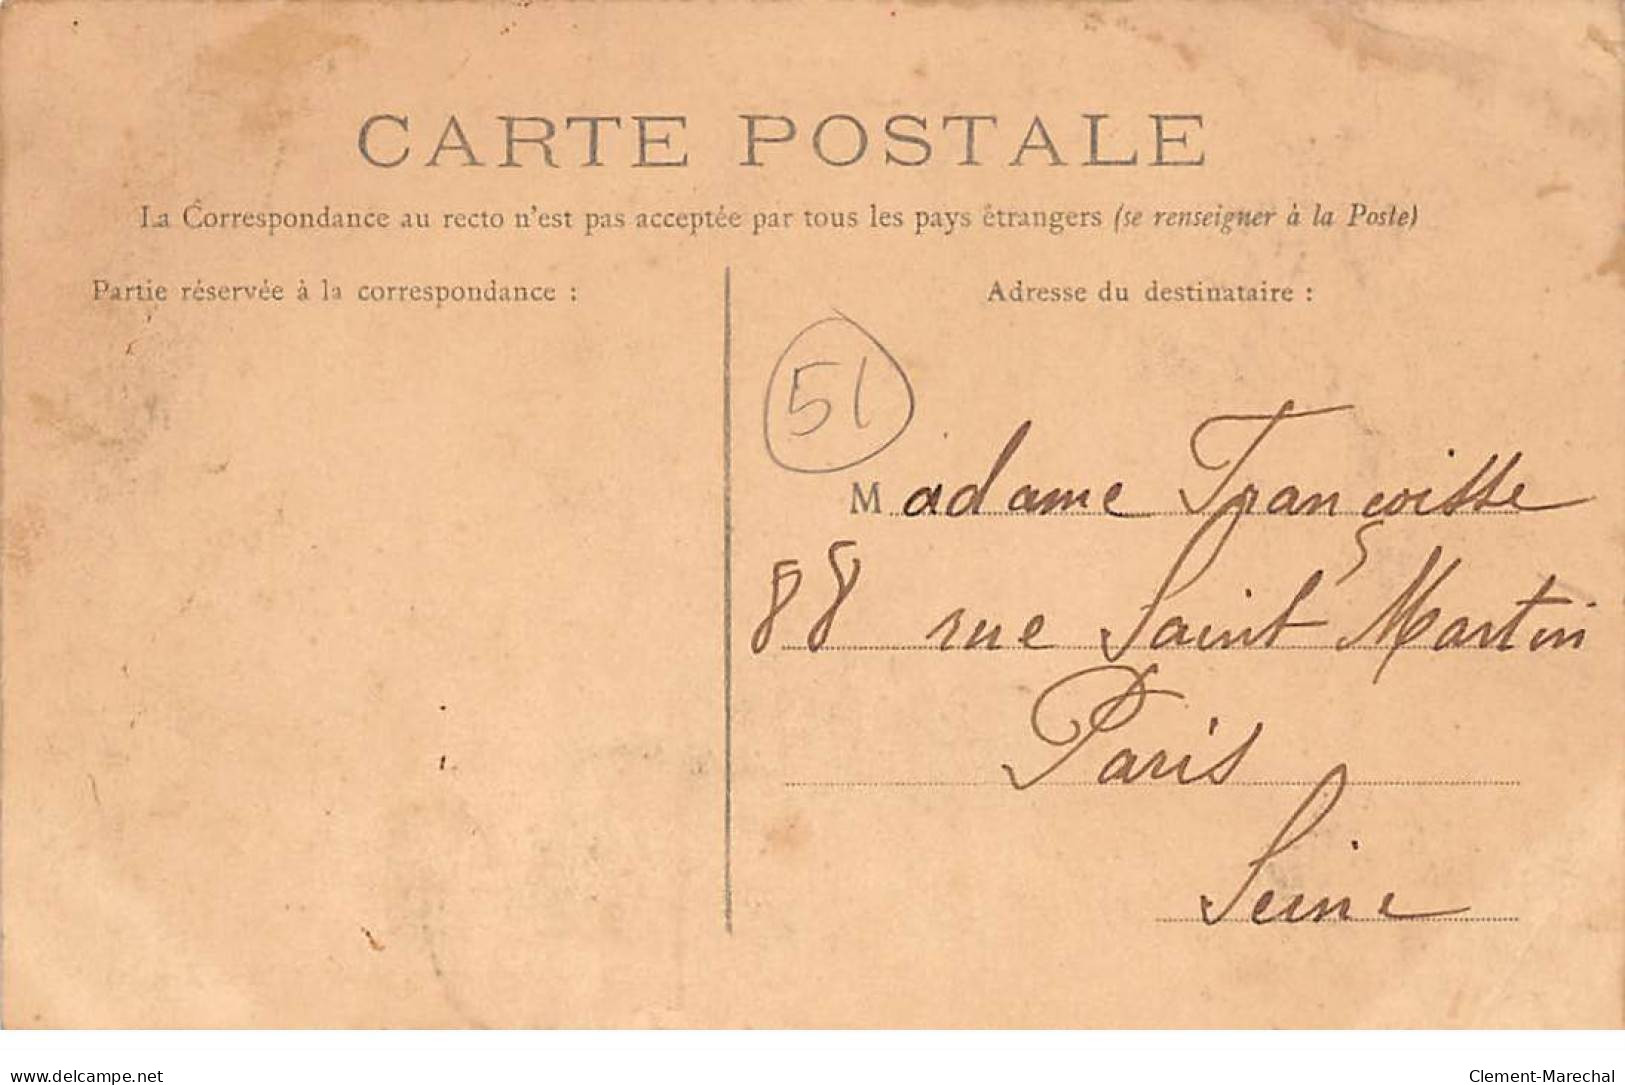 CARTE POSTALE
La Correspondance au recto n'est pas acceptée par tous les pays étrangers (se renseigner à la Poste)
Partie réservée à la correspondance :
Adresse du destinataire :
51
Madame Françoisse
88 rue Saint Martin
Paris
Seine
www.delcampe.net
Clement-Marechal